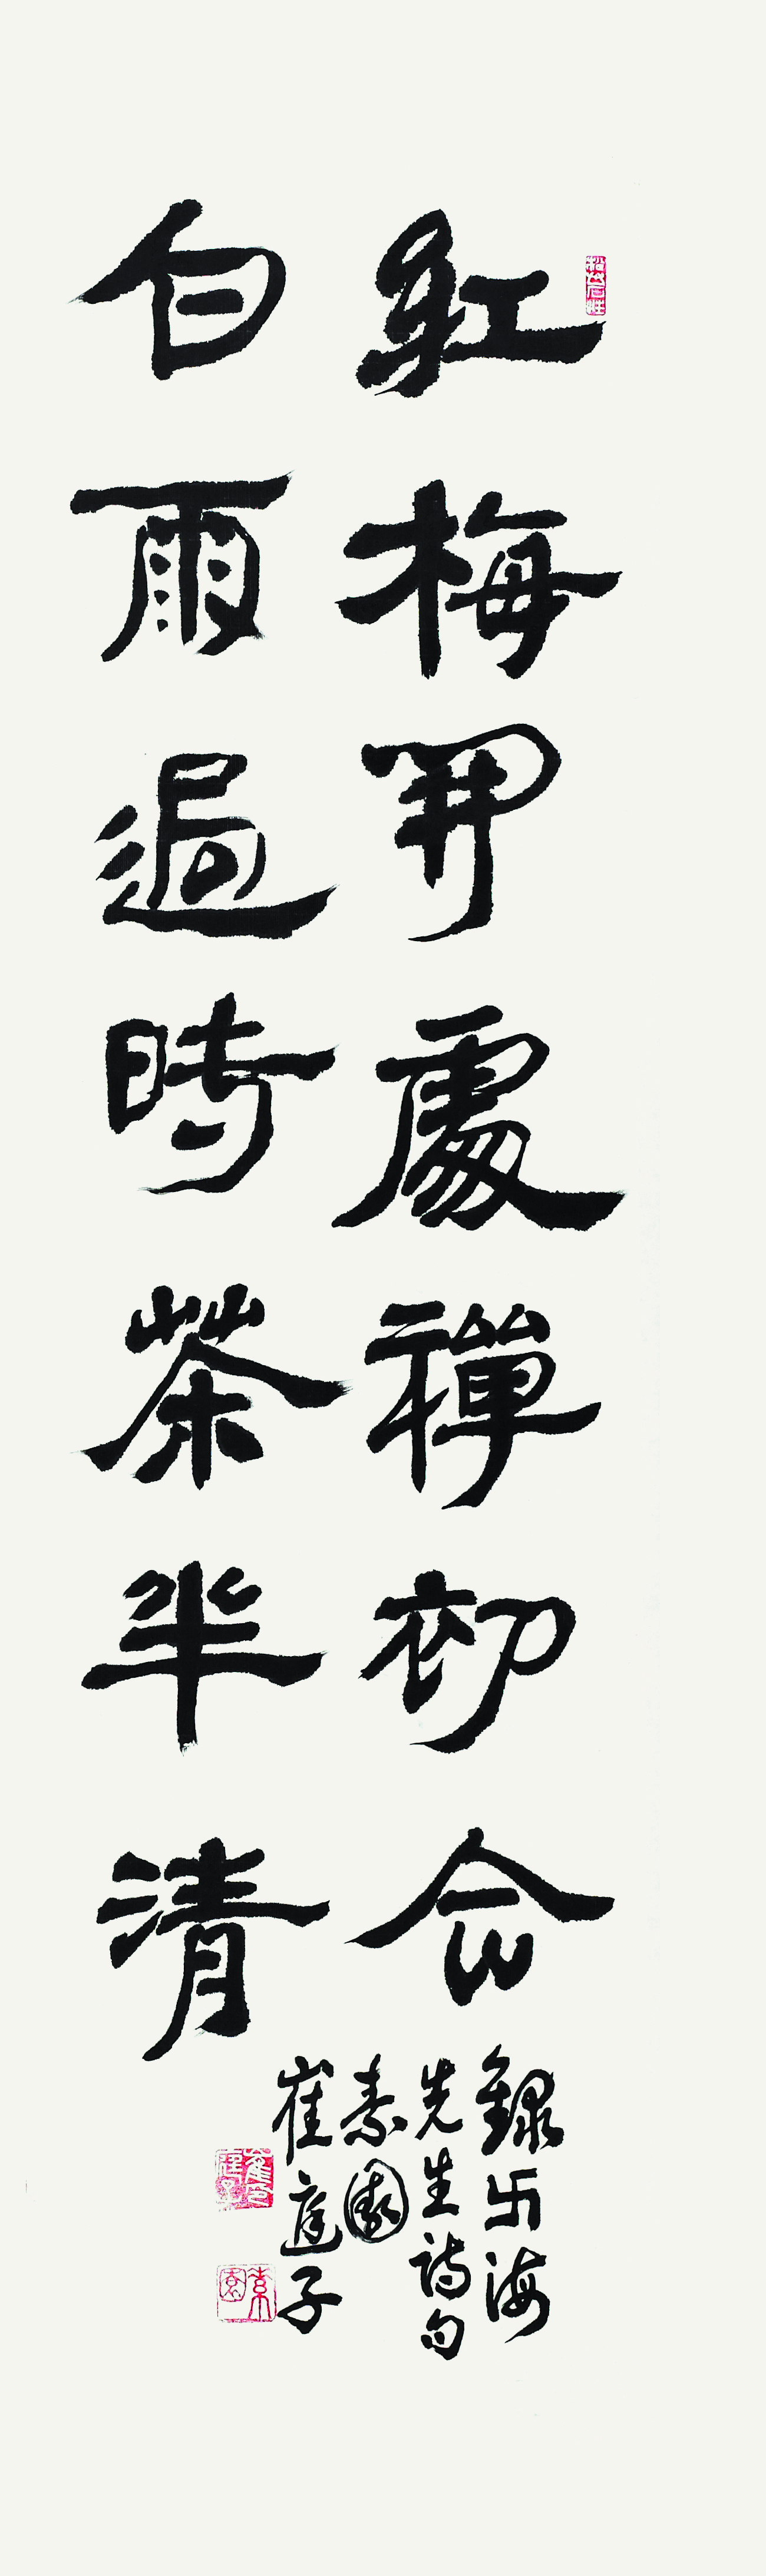 紅梅開處禪初會
白雨過時茶半清
錄卍海
先生詩句
素園
崔庭子